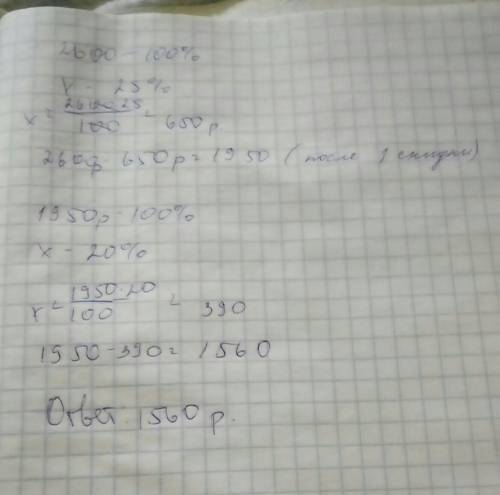 2600 - 100%
x - 25%
x = 2600·25 / 100 = 650р
2600р - 650р = 1950 (после 1 скидки)
1950р - 100%
x - 20%
x = 1950·20 / 100 = 390
1950 - 390 = 1560
Ответ 1560 р.